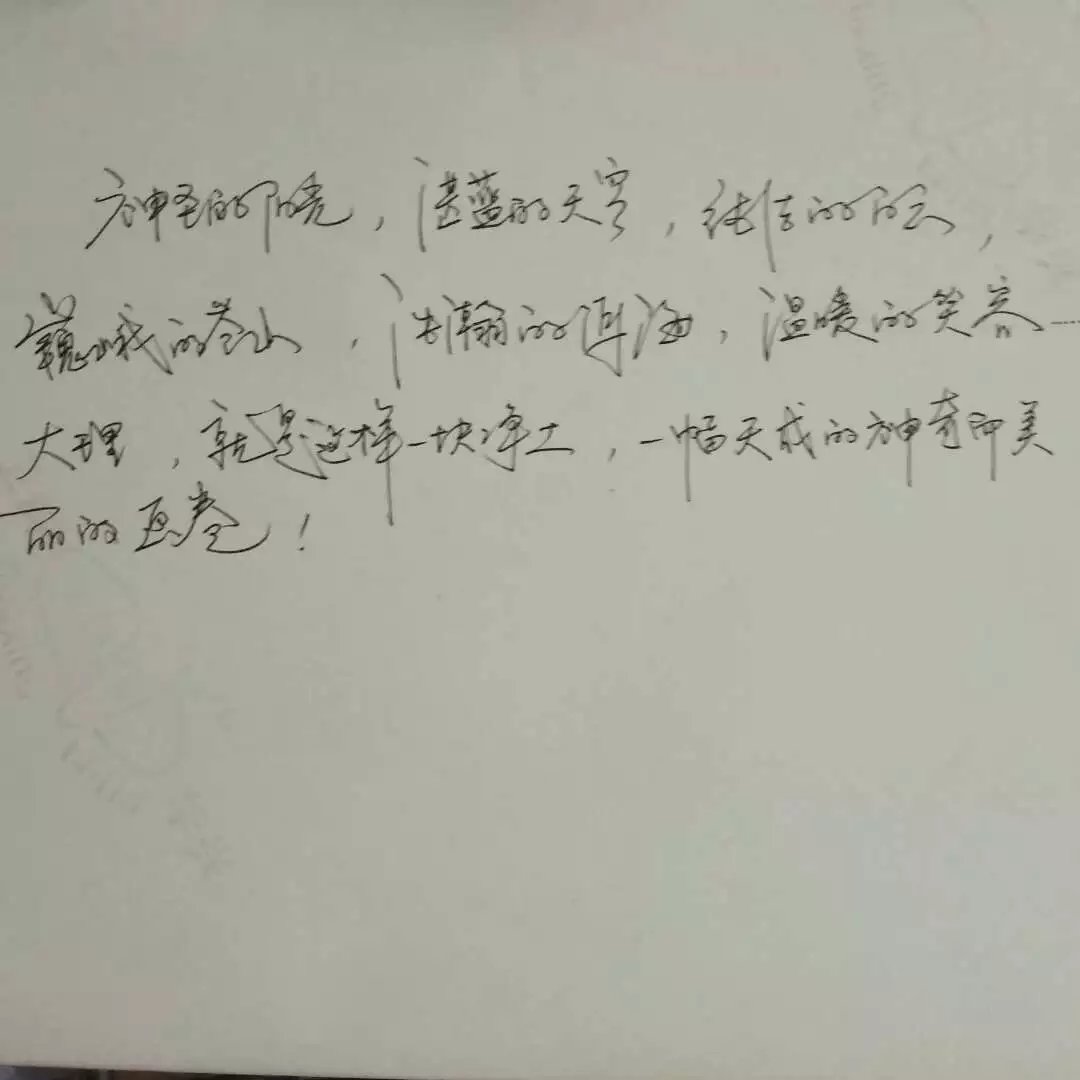 神圣的阳光，湛蓝的天穹，纯洁的白云，
巍峨的苍山，浩瀚的洱海，温暖的笑容……
大理，就是这样一块净土，一幅天成的神奇即美
丽的画卷！